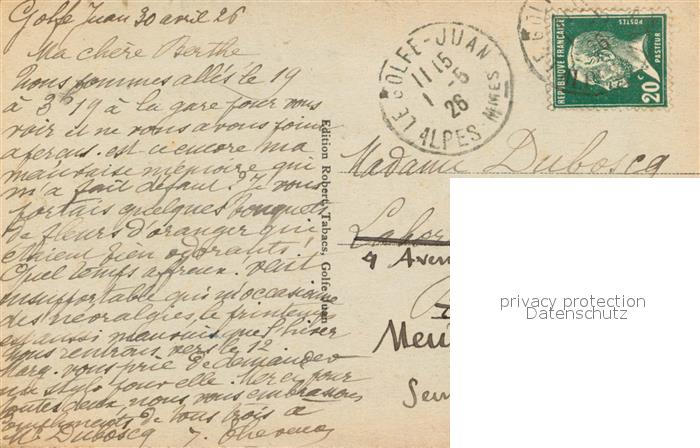 Golfe Juan 30 avril 26
Ma chère Berthe
nous sommes allés le 19
à 3h 19 à la gare pour vous
voir et ne vous avons point
aperçus. est ce encore ma
mauvaise mémoire qui
m'a fait défaut? Je vous
portais quelques bouquets
de fleurs d'oranger qui
étaient bien odorants!
Quel temps affreux. vent
insupportable qui m'occasionne
des névralgies. le printemps
est aussi mauvais que l'hiver
nous rentrons vers le 12
Marg. vous prie de demander
un stylo pour elle. Merci pour
toutes deux, nous vous embrassons
compliments de tous trois à
Mr Duboscq
Edition Robert, Tabacs, Golfe Juan
LE GOLFE-JUAN
11 15
1 -5
26
ALPES MMES
REPUBLIQUE FRANÇAISE
POSTES
PASTEUR
20 c
Madame Duboscq
4 Aven
privacy protection
Datenschutz